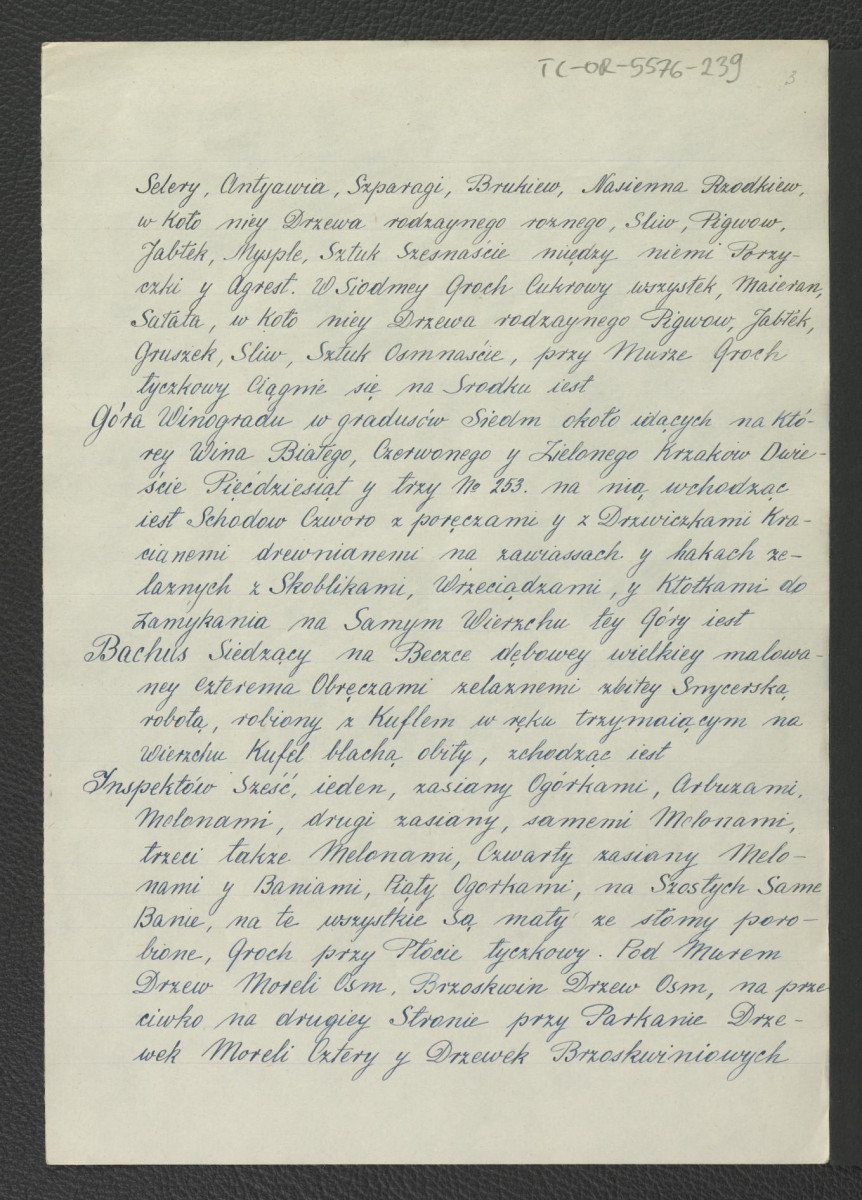 TC-OR-5576-239
3
Selery, Antyawia, Szparagi, Brukiew, Nasienna Rzodkiew,
w Koło niey Drzewa rodzaynego roznego, Sliw, Pigwow,
Jabłek, Mysple, Sztuk Szesnaście między niemi Porzy-
czki y Agrest. W Siodmey Groch Cukrowy wszystek, Maieran,
Sałata, w Koło niey Drzewa rodzaynego Pigwow, Jabłek,
Gruszek, Sliw, Sztuk Osmnaście, przy Murze Groch
tyczkowy Ciągnie się na Srodku iest
Góra Winogradu w gradusów Siedm około idących na Któ-
rey Wina Białego, Czerwonego y Zielonego Krzaków Dwie-
ście Pięćdziesiąt y trzy No 253. na nią wchodząc
iest Schodow Czworo z poręczami y z Drzwiczkami Kra-
cianemi drewnianemi na zawiassach y hakach że-
laznych z Skoblikami, Wrzeciądzami, y Kłotkami do
zamykania na Samym Wierzchu tey Góry iest
Bachus Siedzący na Beczce dębowey wielkiey malowa-
ney Czterema Obręczami zelaznemi zbitey Snycerską
robotą, robiony z Kuflem w ręku trzymaiącym na
Wierzchu Kufel blachą obity, zchodząc iest
Inspektów Sześć, ieden, zasiany Ogórkami, Arbuzami,
Melonami, drugi zasiany, samemi Melonami,
trzeci takze Melonami, Czwarty zasiany Melo-
nami y Baniami, Piąty Ogorkami, na Szostych Same
Banie, na te wszystkie Są maty ze słomy poro-
bione, Groch przy Płocie tyczkowy. Pod Murem
Drzew Moreli Osm, Brzoskwin Drzew Osm, na prze
ciwko na drugiey Stronie przy Parkanie Drze-
wek Moreli Cztery y Drzewek Brzoskwiniowych